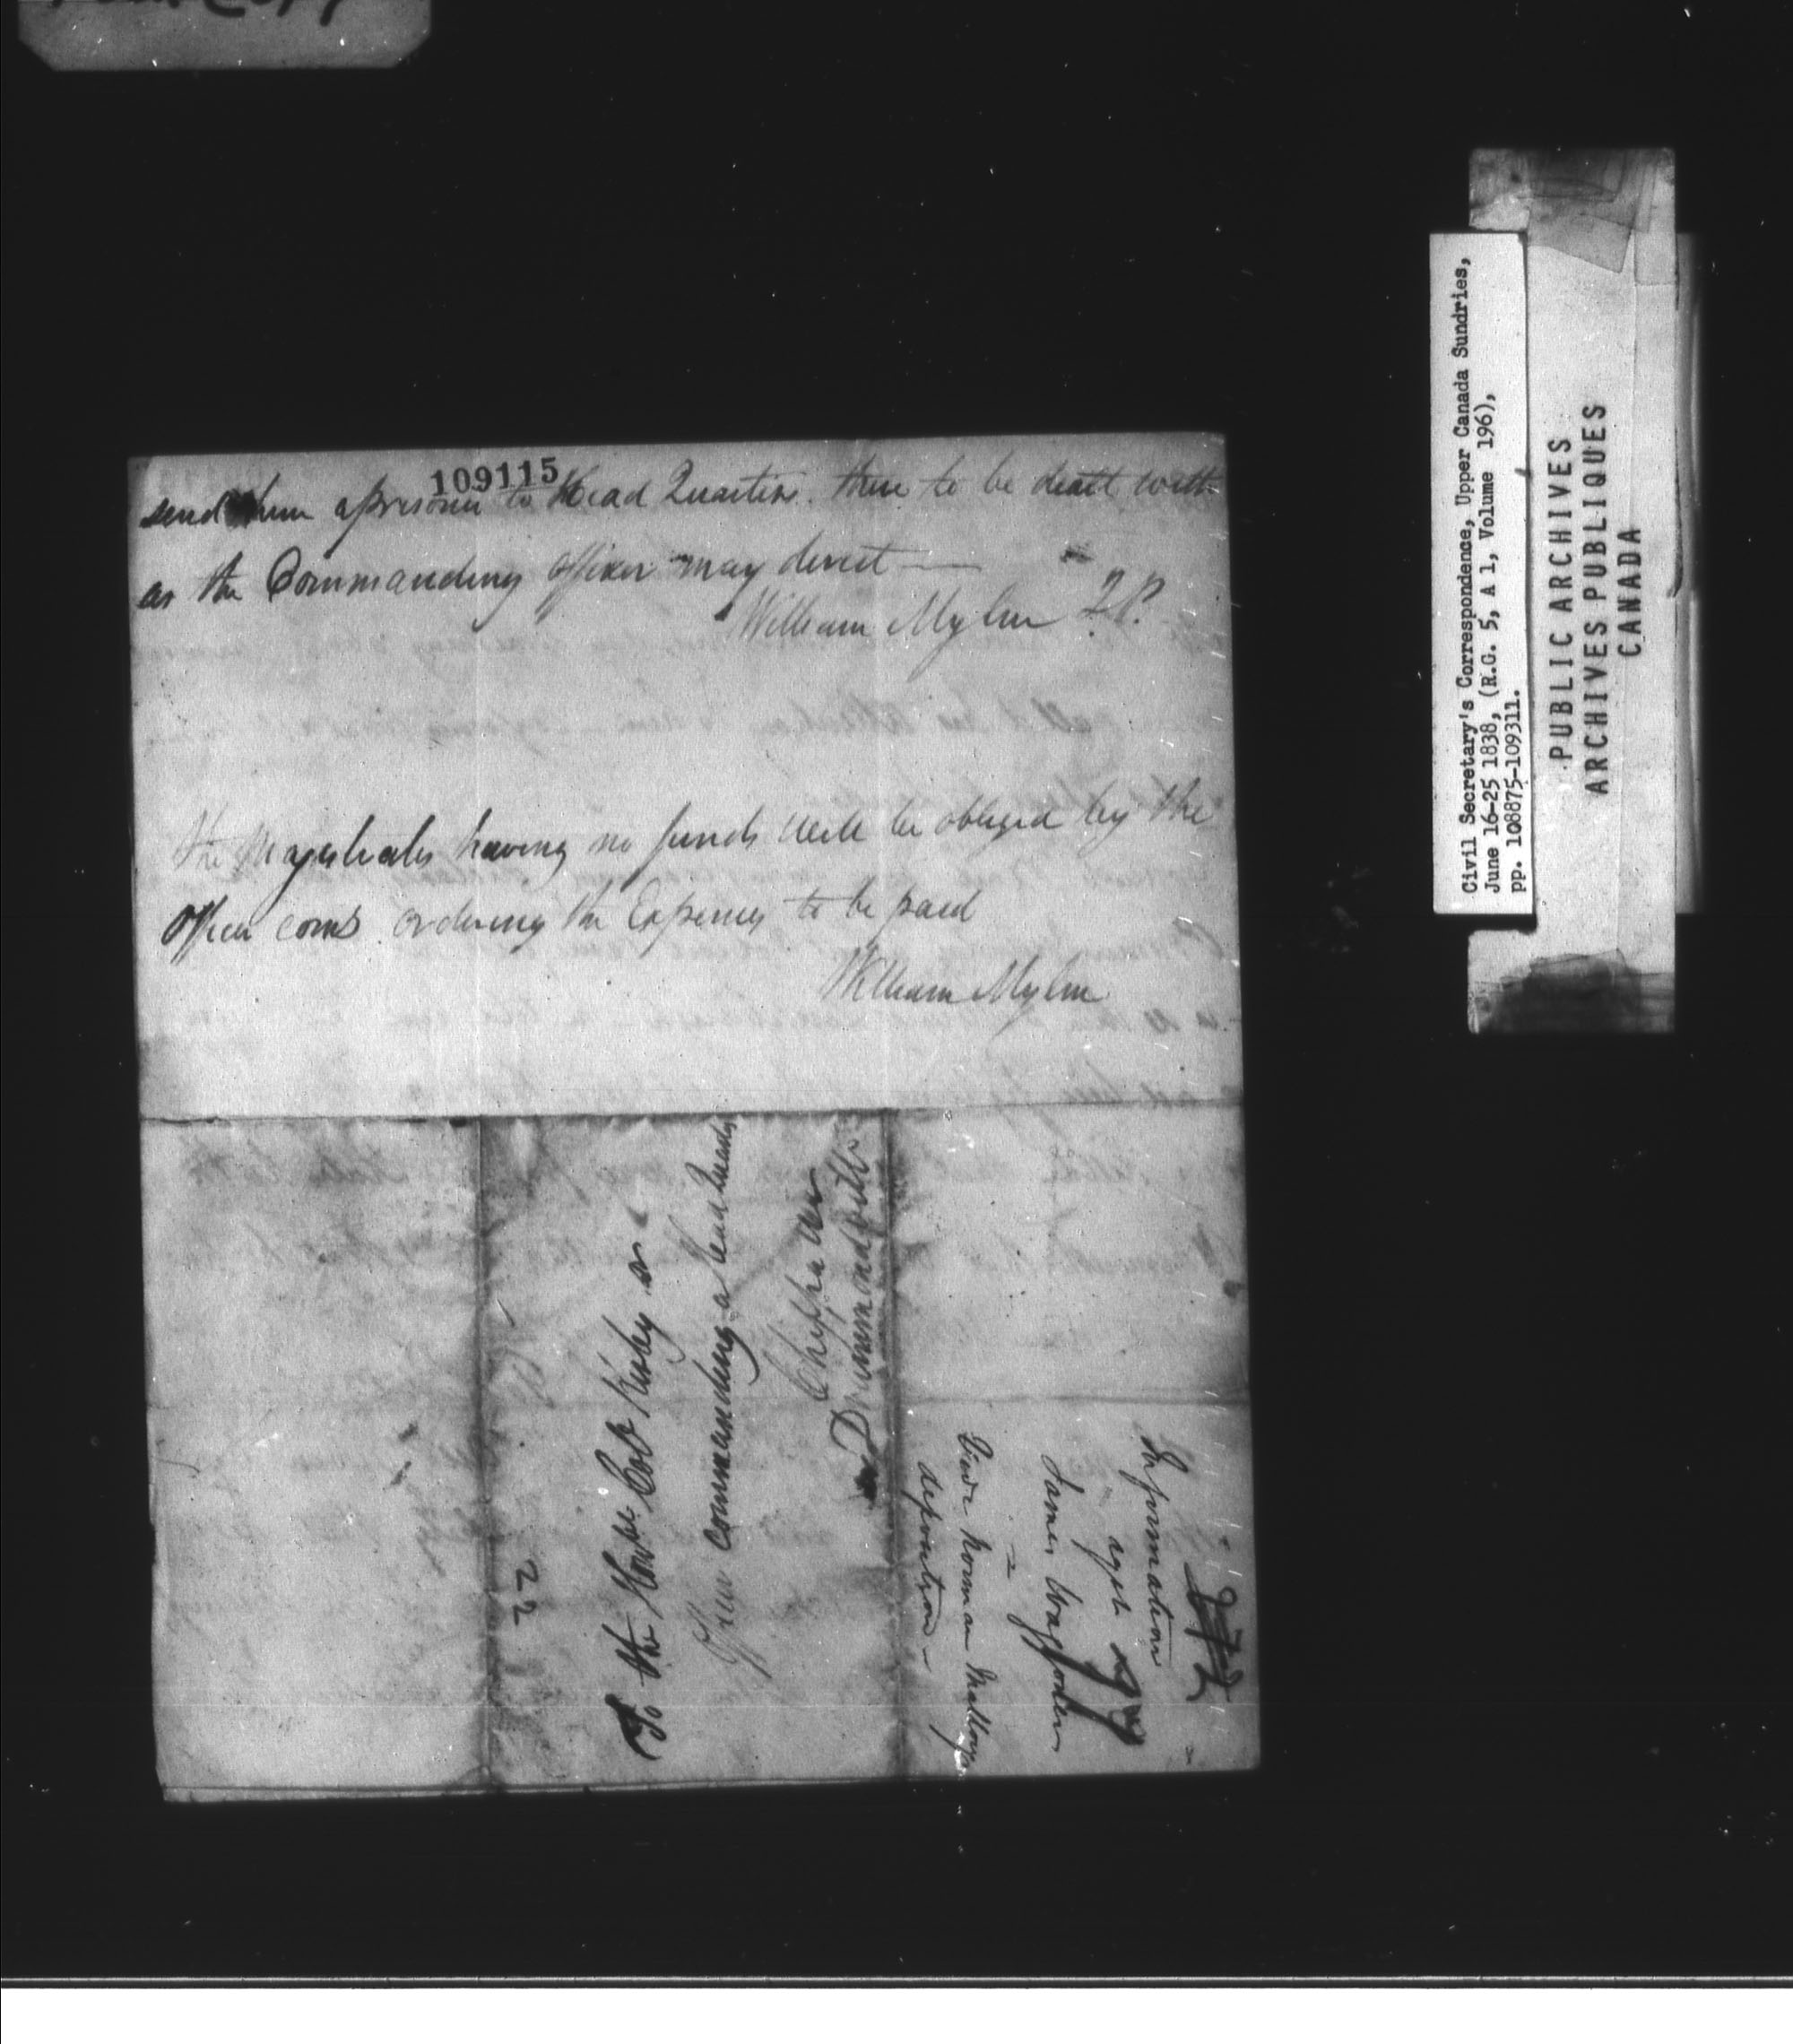 109115
send him a prisoner to Head Quarters. there to be dealt with
as the Commanding officer may direct —
William Mylne J.P.
The Magistrates having no funds will be obliged by the
Officer comd. ordering the Expenses to be paid
William Mylne
To the Honble Col. Kirby or
Officer commanding a Head Quarters
Chippawa
Drummondville
22
Information
agst
James Waggoner
Vide Norman Mallorys
deposition —
Civil Secretary's Correspondence, Upper Canada Sundries,
June 16-25 1838, (R.G. 5, A 1, Volume 196),
pp. 108875-109311.
PUBLIC ARCHIVES
ARCHIVES PUBLIQUES
CANADA